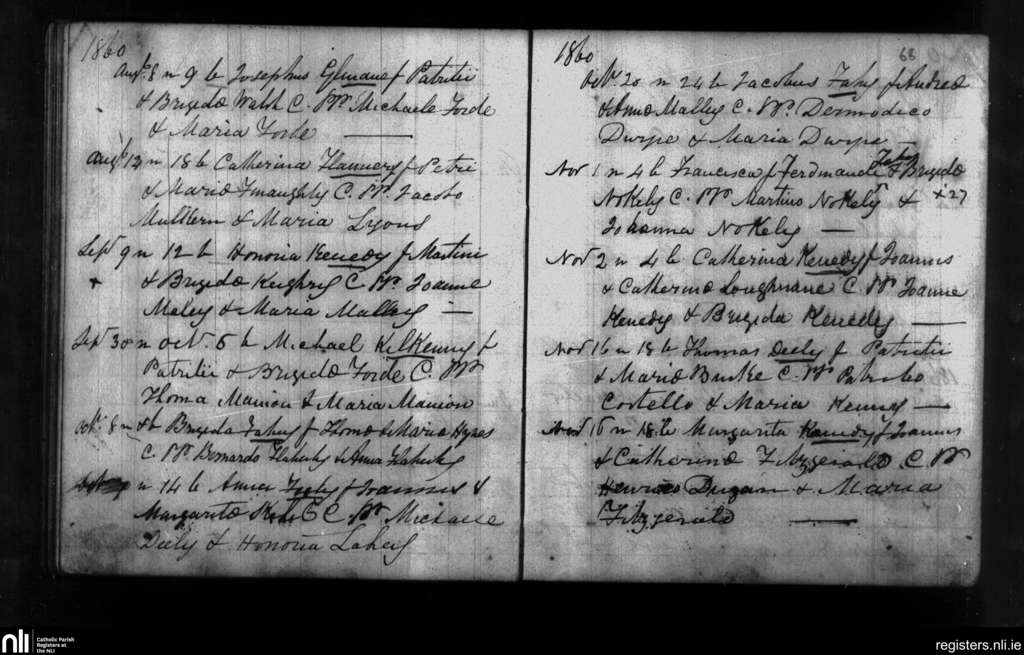 1860
Augt 8 n 9 b Josephus f Patritii
& Brigida Walsh C. Pr. Michaele Forde
& Maria Forde
Augt 12 n 18 b Catherina Flannery f Petri
& Maria C. Pr. Jacobo
Mulkern & Maria Lyons
Sepr 9 n 12 b Honoria Kenedy f Martini
& Brigida C Pr. Joanne
Maley & Maria Malley
Sepr 30 n Oct. 5 b Michael Kilkenny f
Patritii & Brigida Forde C. Pr
Thoma Manion & Maria Manion
Oct. 8 n b Brigida Fahy f Thoma & Maria Hynes
C. Pr. Bernardo Flaherty & Anna Flaherty
n 14 b Anna f Joannis &
Margarita C Pr Michaele
Deely & Honoria Lahey
1860
68
Oct. 20 n 24 b Jacobus Fahy f Andrea
& Anna Malley C. Pr. Dermodeco
& Maria
Nov 1 n 4 b Francisca f Ferdinandi Fahy & Brigida
NoKely C. Pr Martino NoKely & x27
Johanna NoKely
Nov 2 n 4 b Catherina Kenedy f Joannis
& Catherina Loughnane C Pr Joanne
Kenedy & Brigida Kenedy
Nov 16 n 18 b Thomas Deely f Patritii
& Maria Burke C. Pr Patritio
Costello & Maria Kenny
Nov 16 n 18 b Margarita Kenedy f Joannis
& Catherina Fitzgerald C Pr
Henrico Dugan & Maria
Fitzgerald
nli
Catholic Parish
Registers at
the NLI
registers.nli.ie